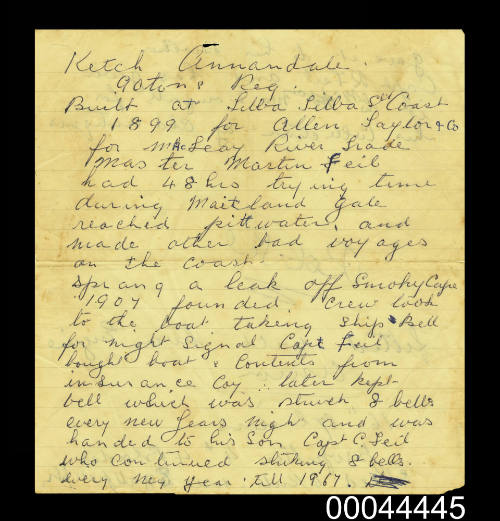 Ketch Annandale.
90 tons Reg.
Built at Tilba Tilba Sth Coast
1899 for Allen Taylor & Co
for MacLeay River Trade
Master Martin Feil
had 48 hrs trying time
during Maitland gale
reached pittwater, and
made other bad voyages
on the coast.
Sprang a leak off Smoky Cape
1907 founded. crew took
to the boat taking Ships Bell
for night Signal Capt Feil
bought boat & Contents from
insurance Coy. later kept
bell which was struck 8 bells
every new years night and was
handed to his Son Capt C. Feil
who continued striking 8 bells.
every new year till 1967.
00044445